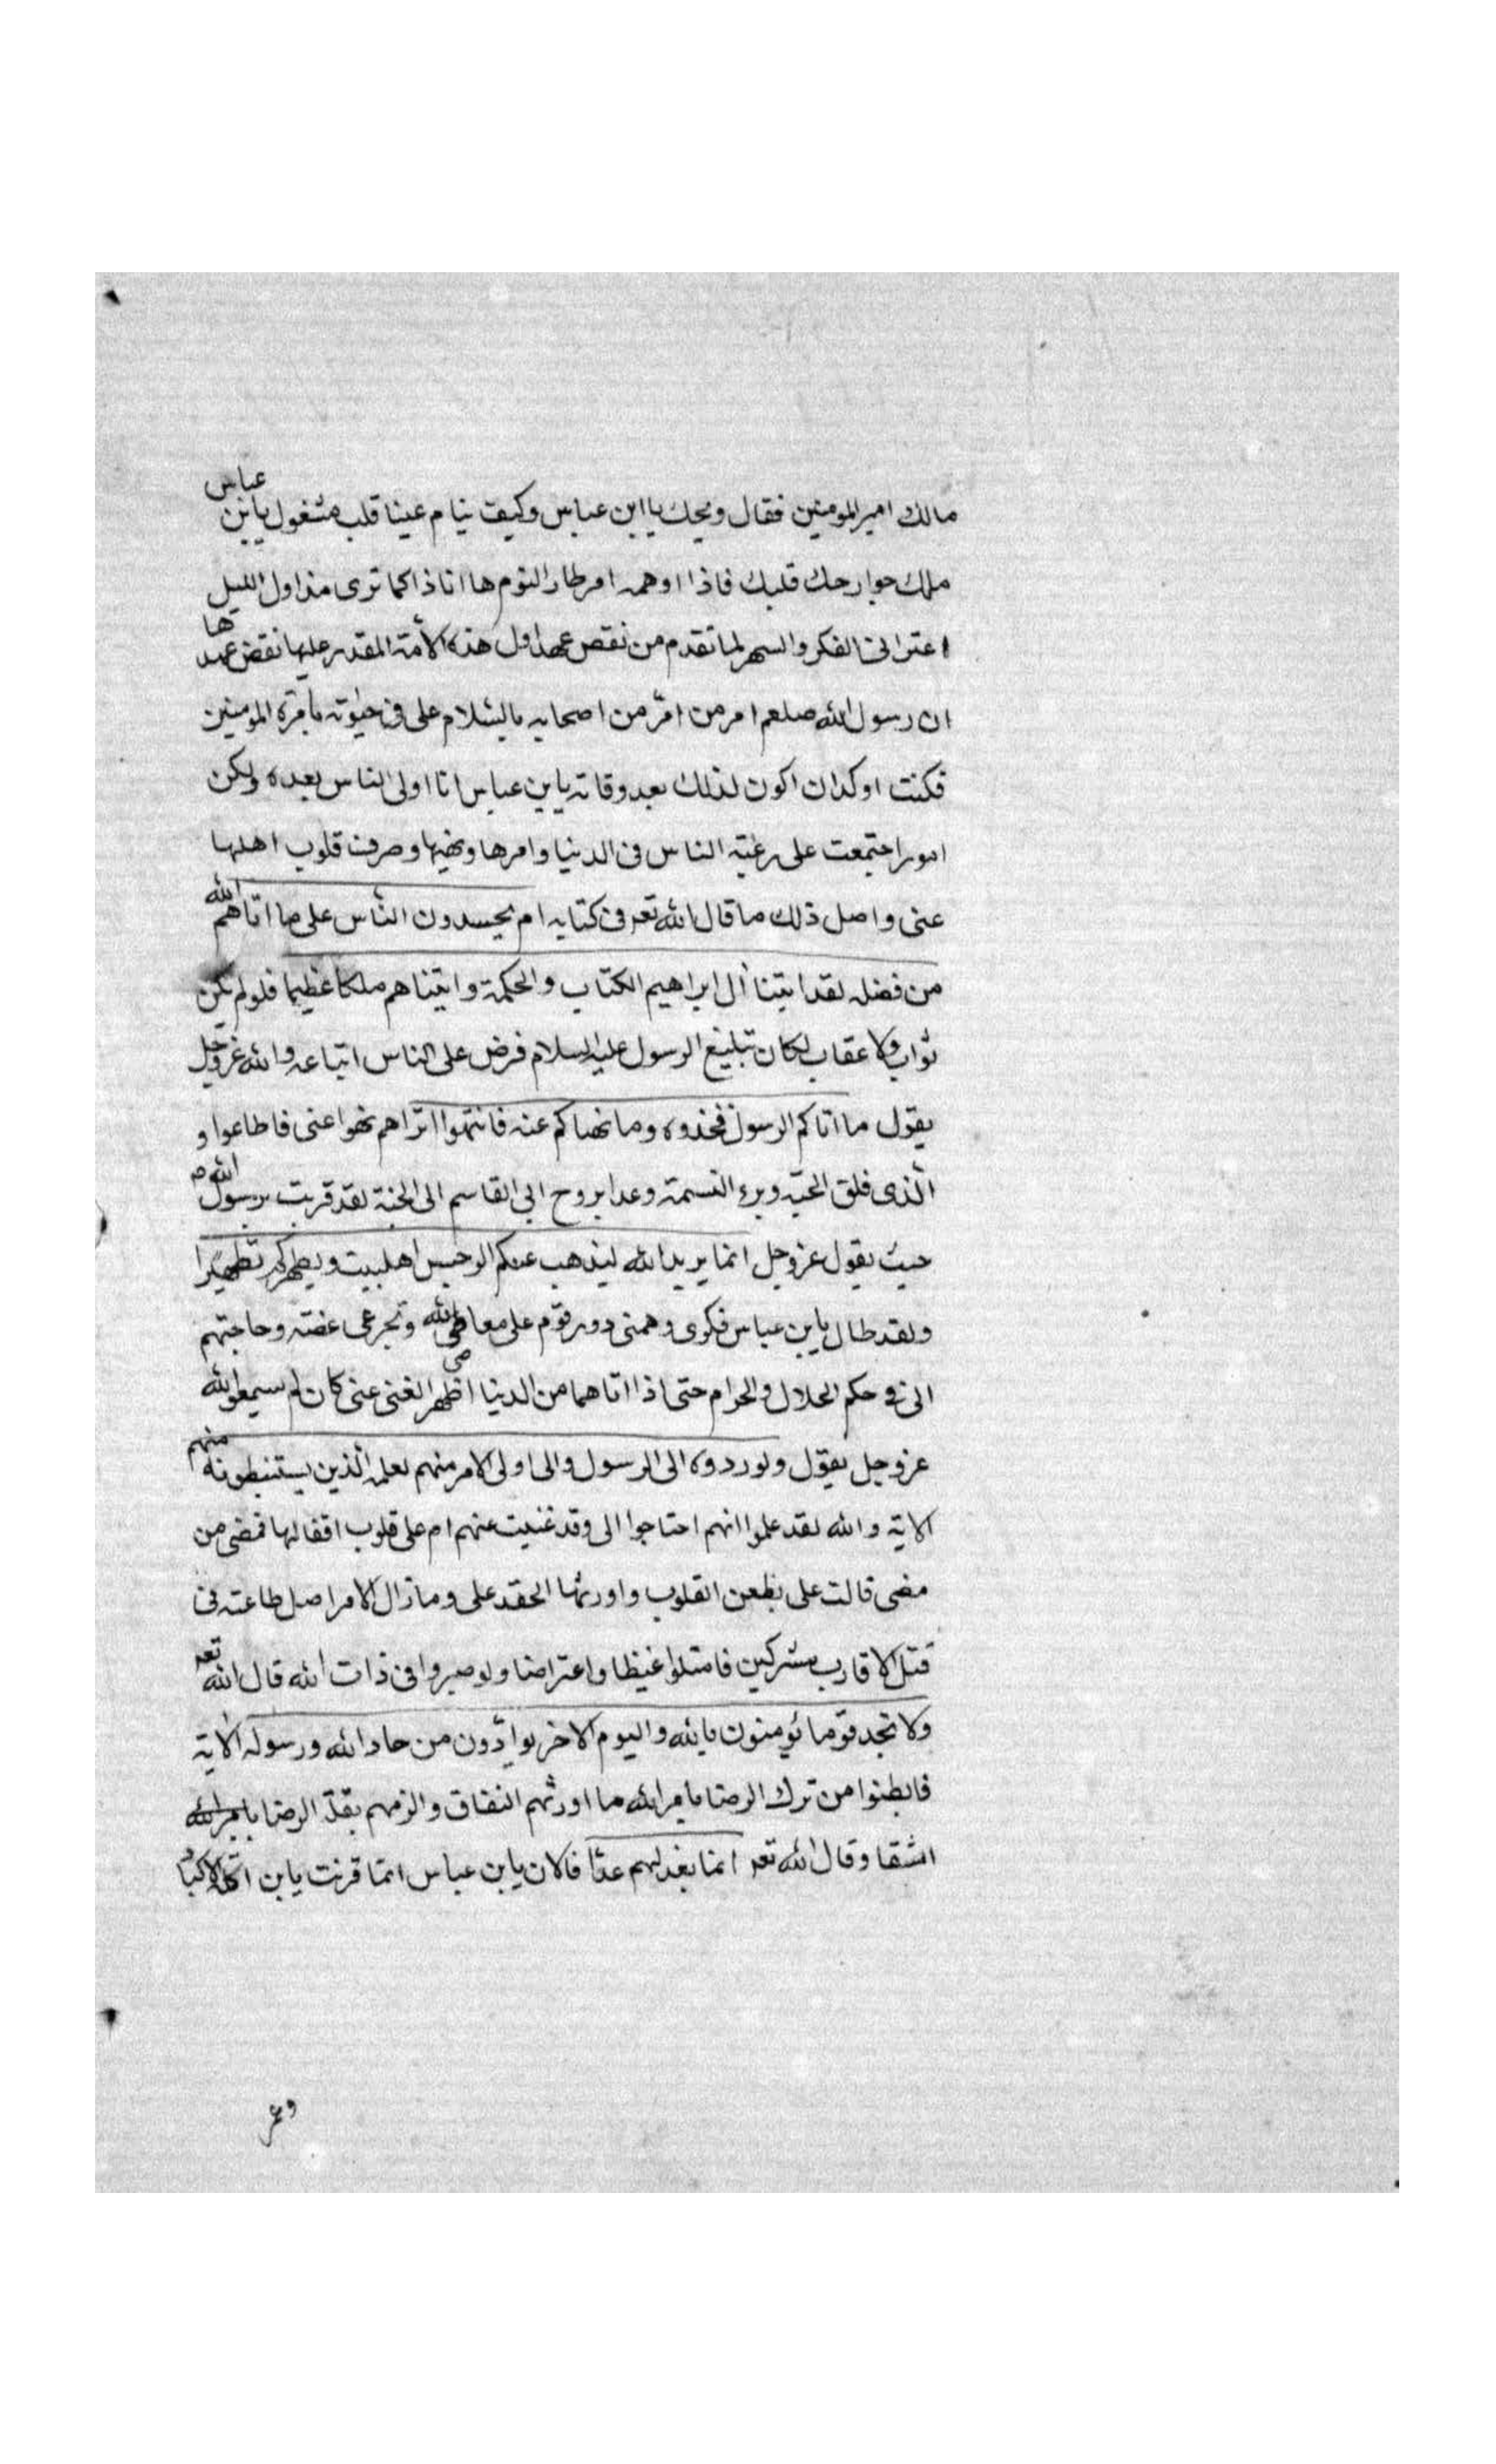 مالك امير المومنين فقال ويحك يا ابن عباس وكيف ينام عينا قلب مشغول يابن عباس
ملك جوارحك قلبك فاذا اوهمه امر طار النوم ها انا ذا كما ترى منذ اول الليل
اعترانى الفكر والسهر لما تقدم من نقص عهد اول هذه الأمة المقدر عليها نقض عهدها
ان رسول الله صلعم امر من امر من اصحابه بالسّلام على فى حيوته بأمرة المومنين
فكنت اوكد ان اكون لذلك بعد وفاته يابن عباس انا اولى الناس بعده ولكن
امور اجتمعت على رغبة الناس فى الدنيا وامرها ونهيها وصرف قلوب اهلها
عنى واصل ذلك ما قال الله تعه فى كتابه ام يحسدون النّاس على ما اتاهم الله
من فضله لقد اتينا أل ابراهيم الكتاب والحكمة واتيناهم ملكا عظيما فلو لم يكن
ثواب ولا عقاب لكان تبليغ الرسول عليه السلام فرض على الناس اتباعه والله عز وجل
يقول ما اتاكم الرسول فخذوه وما نهاكم عنه فانتهوا اتراهم نهوا عنى فاطاعوا و
الّذى فلق الحبّة وبرء النسمة وعدا بروح ابي القاسم الى الجنة لقد قربت برسول الله ص
حيث يقول عز وجل انما يريد الله ليذهب عنكم الرجس اهلبيت ويطهركم تطهيرا
ولقد طال يابن عباس فكرى وهمنى دور قوم على معاصى الله وتجرعى غصته وحاجتهم
الى فى حكم الحلال والحرام حتى اذا اتاهما من الدنيا اظهر الغنى عنى كان لم سيمعوا الله
عز وجل يقول ولو ردوه الى الرسول والى اولى الامر منهم لعلمه الّذين يستنبطونه منهم
الاية والله لقد علموا انهم احتاجوا الى وقد غنيت عنهم ام على قلوب اقفالها فمضى من
مضى قالت على بظعن القلوب واورثها الحقد على ومازال الامر اصل طاعته فى
قتل الاقارب مشركين فامتلوا غيظا واعتراضا ولو صبروا فى ذات الله قال الله تعه
ولا تجد قوما يؤمنون بالله واليوم الاخر يوادّون من حاد الله ورسوله الاية
فابطنوا من ترك الرضا بامر الله ما اورثهم النفاق والزمهم بقلّة الرضا بامر الله
الشقا وقال الله تعه انما يغد لهم عدّا فالان يابن عباس انما قرنت يابن اكلة الاكباد
وعمر